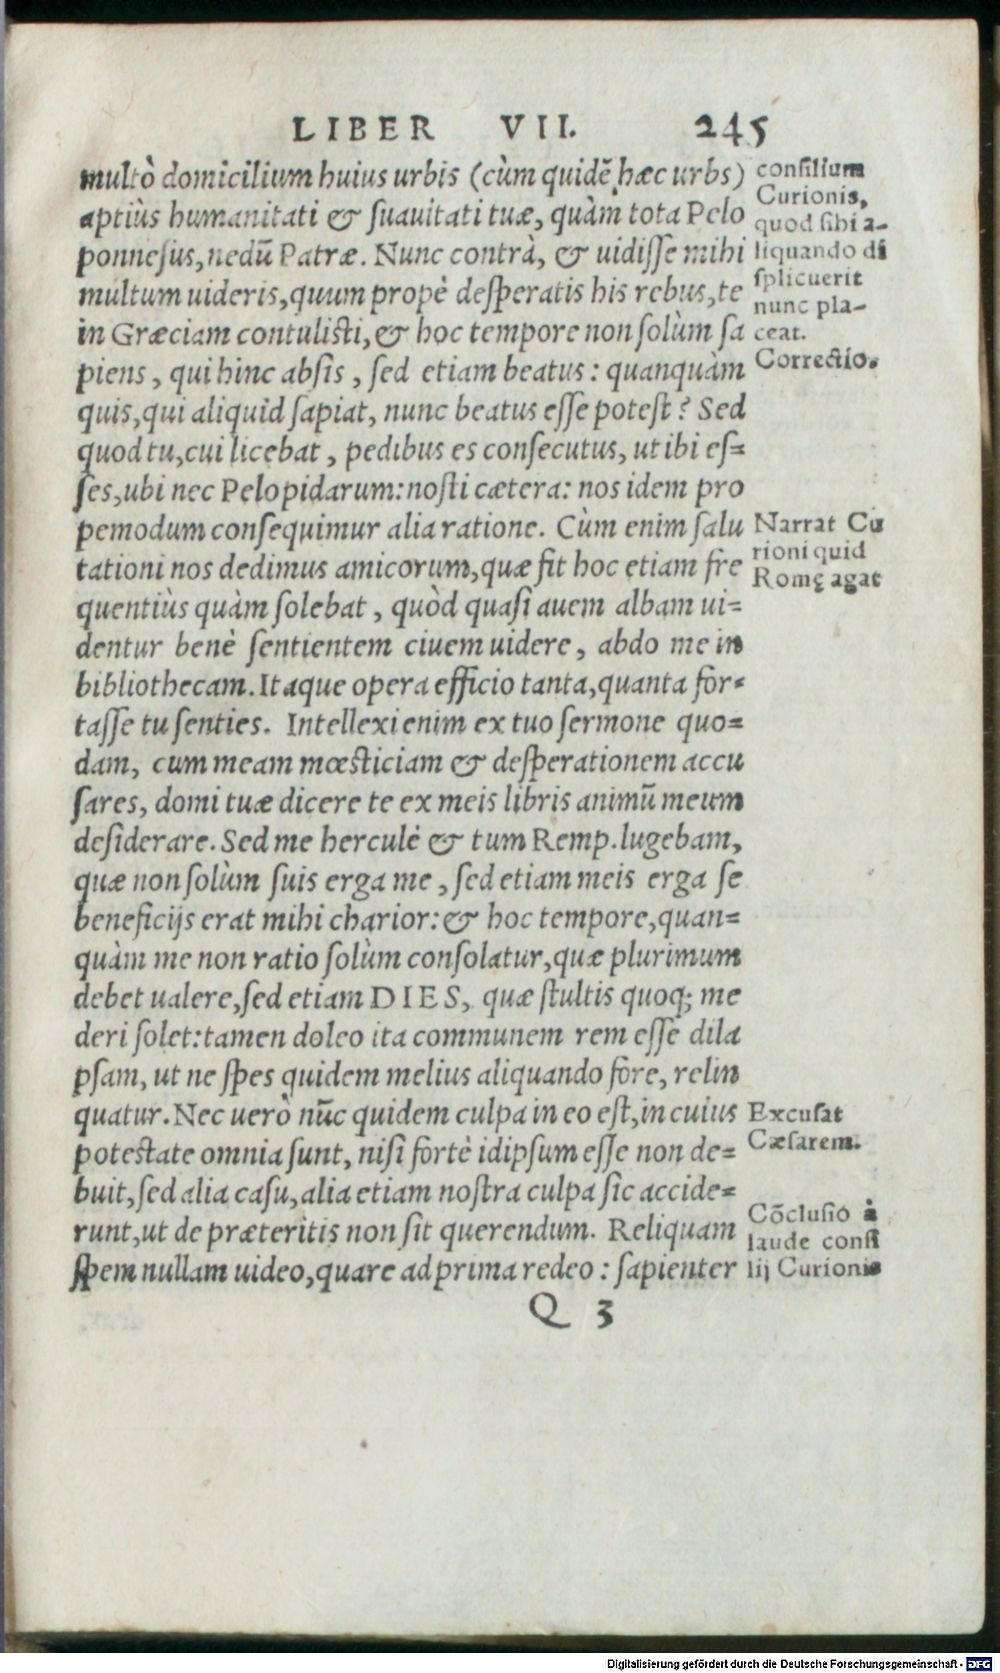 LIBER VII. 245
multò domicilium huius urbis (cùm quidē hæc urbs)
aptiùs humanitati & suauitati tuæ, quàm tota Pelo
ponnesus, nedū Patræ. Nunc contrà, & uidisse mihi
multum uideris, quum propè desperatis his rebus, te
in Græciam contulisti, & hoc tempore non solùm sa
piens, qui hinc absis, sed etiam beatus: quanquàm
quis, qui aliquid sapiat, nunc beatus esse potest? Sed
quod tu, cui licebat, pedibus es consecutus, ut ibi es=
ses, ubi nec Pelopidarum: nosti cætera: nos idem pro
pemodum consequimur alia ratione. Cùm enim salu
tationi nos dedimus amicorum, quæ fit hoc etiam fre
quentiùs quàm solebat, quòd quasi auem albam ui=
dentur benè sentientem ciuem uidere, abdo me in
bibliothecam. Itaque opera efficio tanta, quanta for=
tasse tu senties. Intellexi enim ex tuo sermone quo=
dam, cum meam mœsticiam & desperationem accu
sares, domi tuæ dicere te ex meis libris animū meum
desiderare. Sed me herculè & tum Remp. lugebam,
quæ non solùm suis erga me, sed etiam meis erga se
beneficijs erat mihi charior: & hoc tempore, quan=
quàm me non ratio solùm consolatur, quæ plurimum
debet ualere, sed etiam DIES, quæ stultis quoq; me
deri solet: tamen doleo ita communem rem esse dila
psam, ut ne spes quidem melius aliquando fore, relin
quatur. Nec uerò nūc quidem culpa in eo est, in cuius
potestate omnia sunt, nisi fortè id ipsum esse non de=
buit, sed alia casu, alia etiam nostra culpa sic accide=
runt, ut de præteritis non sit querendum. Reliquam
spem nullam uideo, quare ad prima redeo: sapienter
Q 3
consilium
Curionis,
quod sibi a-
liquando di
splicuerit
nunc pla-
ceat.
Correctio.
Narrat Cu
rioni quid
Romę agat
Excusat
Cæsarem.
Cōclusio à
laude consi
lij Curionis
Digitalisierung gefördert durch die Deutsche Forschungsgemeinschaft - DFG